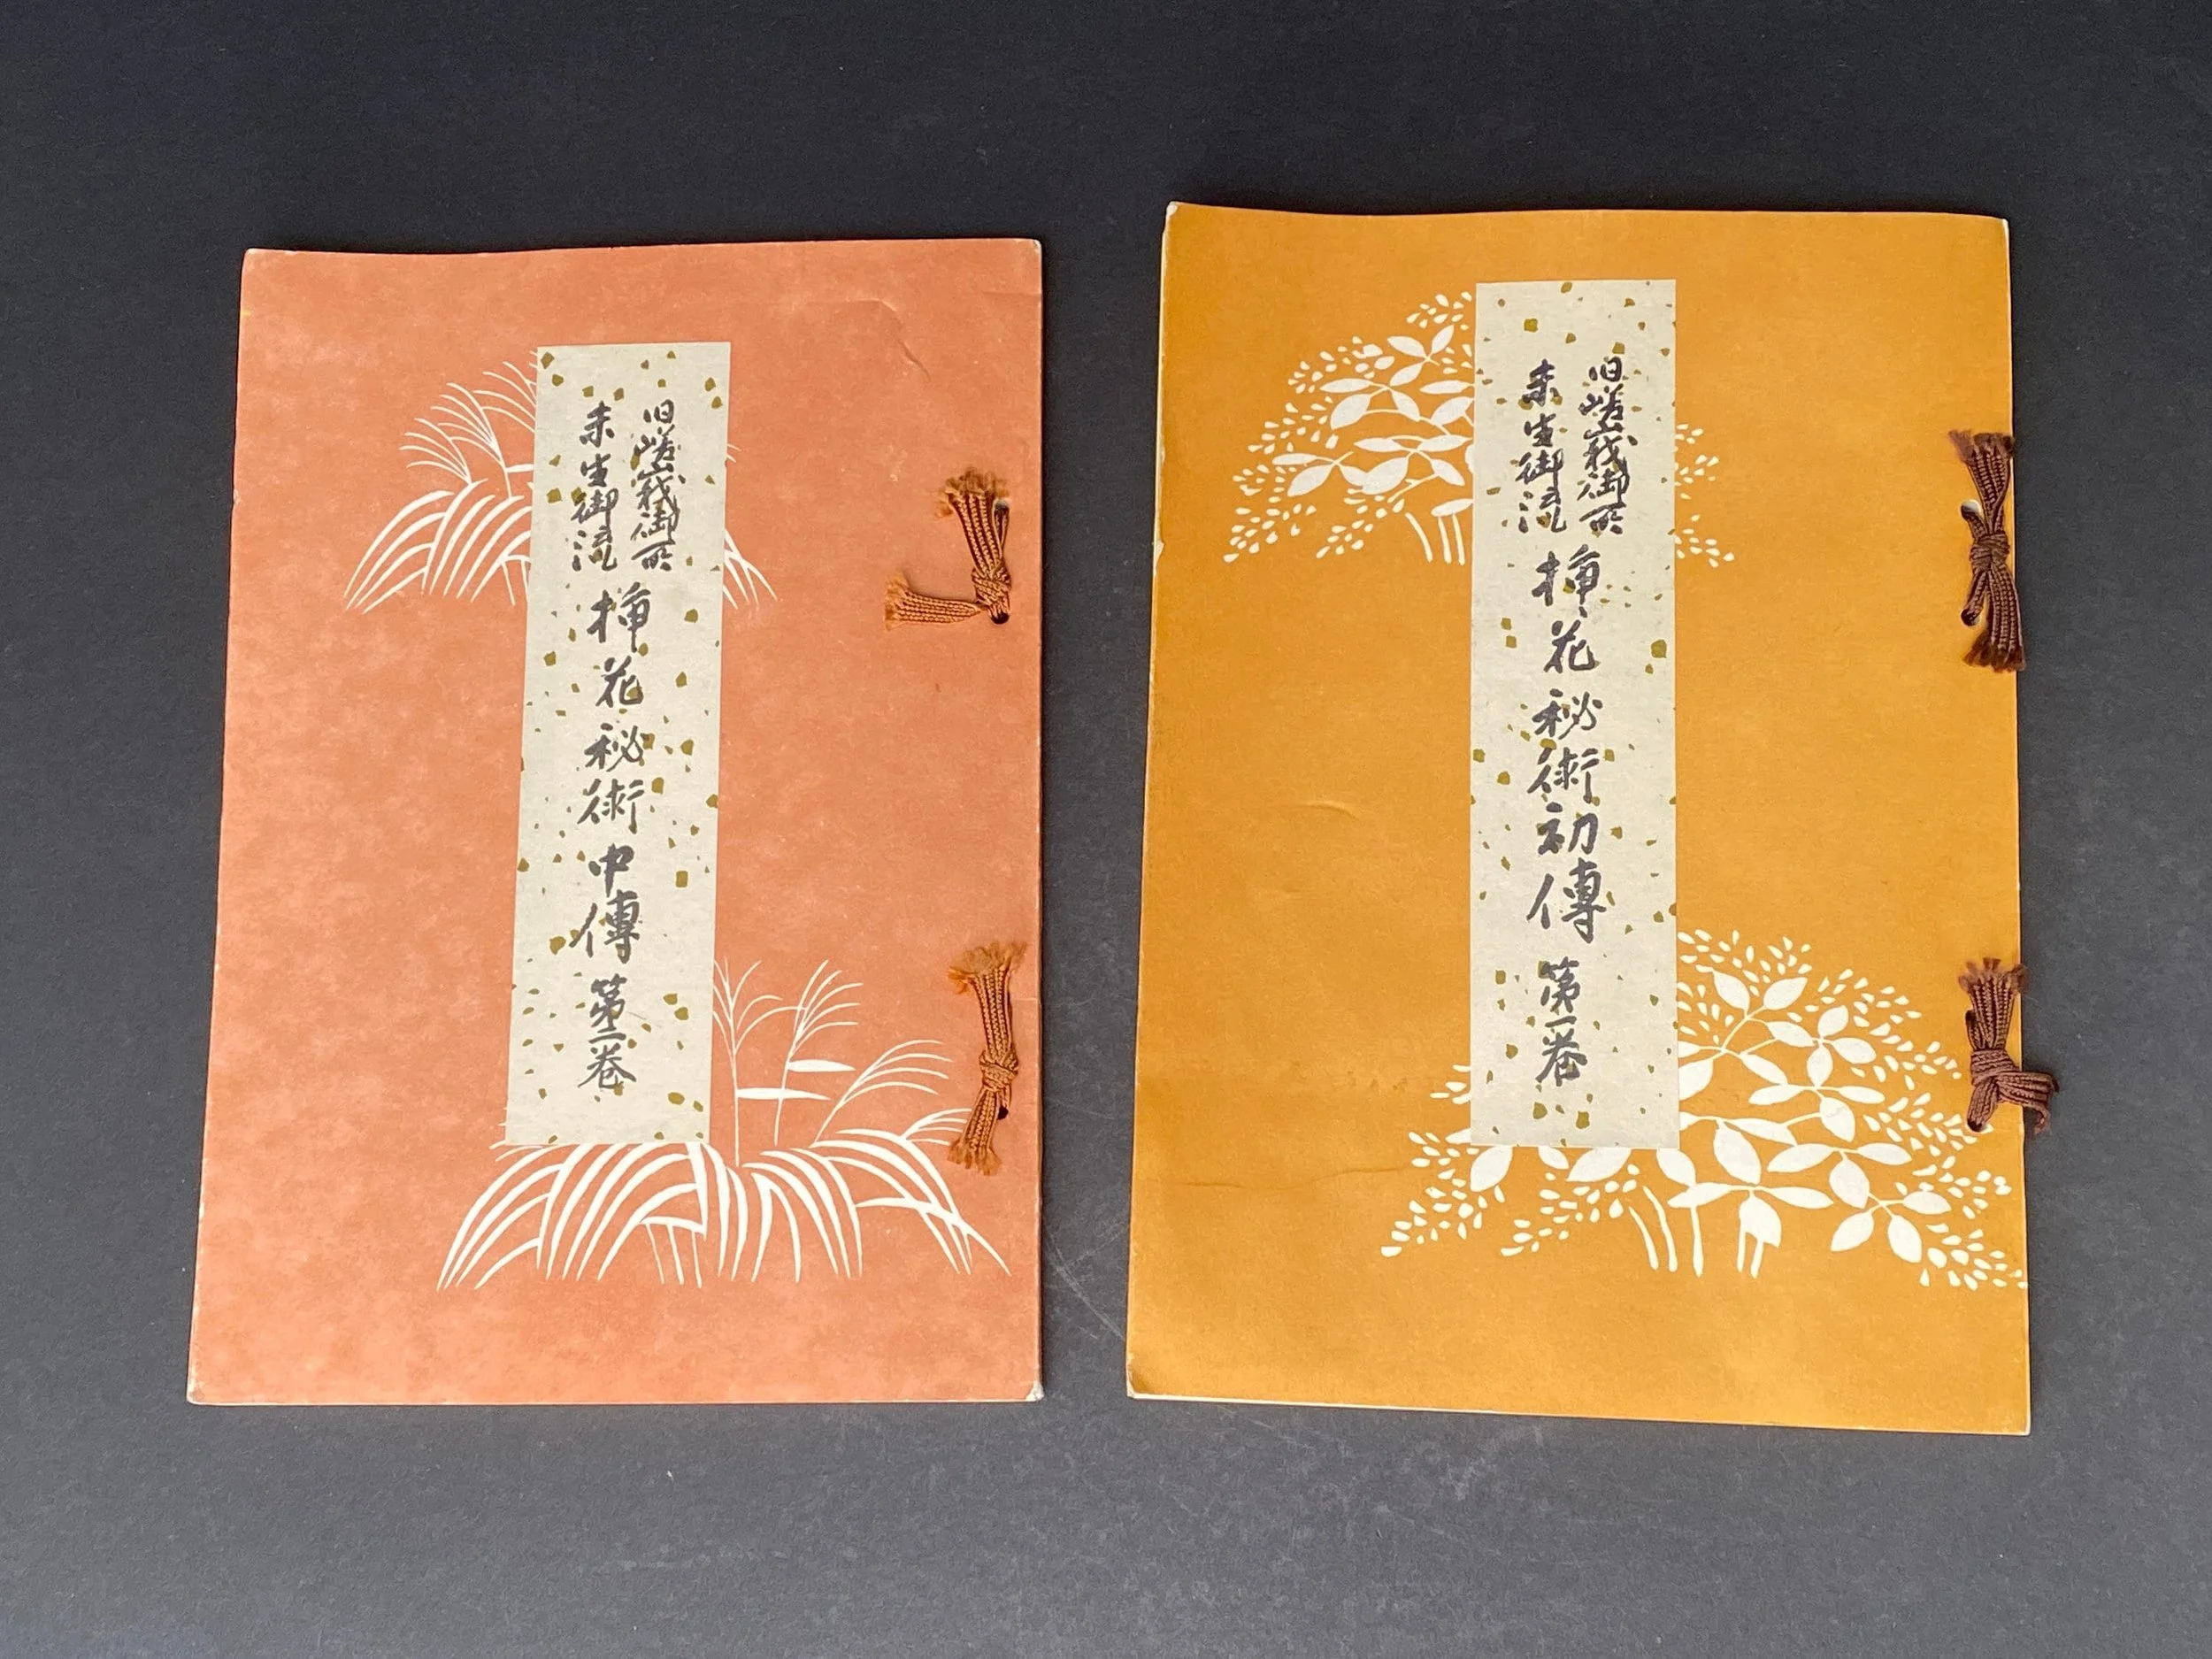 旧嵯峨御所
未生御流
挿花秘術中傳第二巻
旧嵯峨御所
未生御流
挿花秘術初傳第一巻